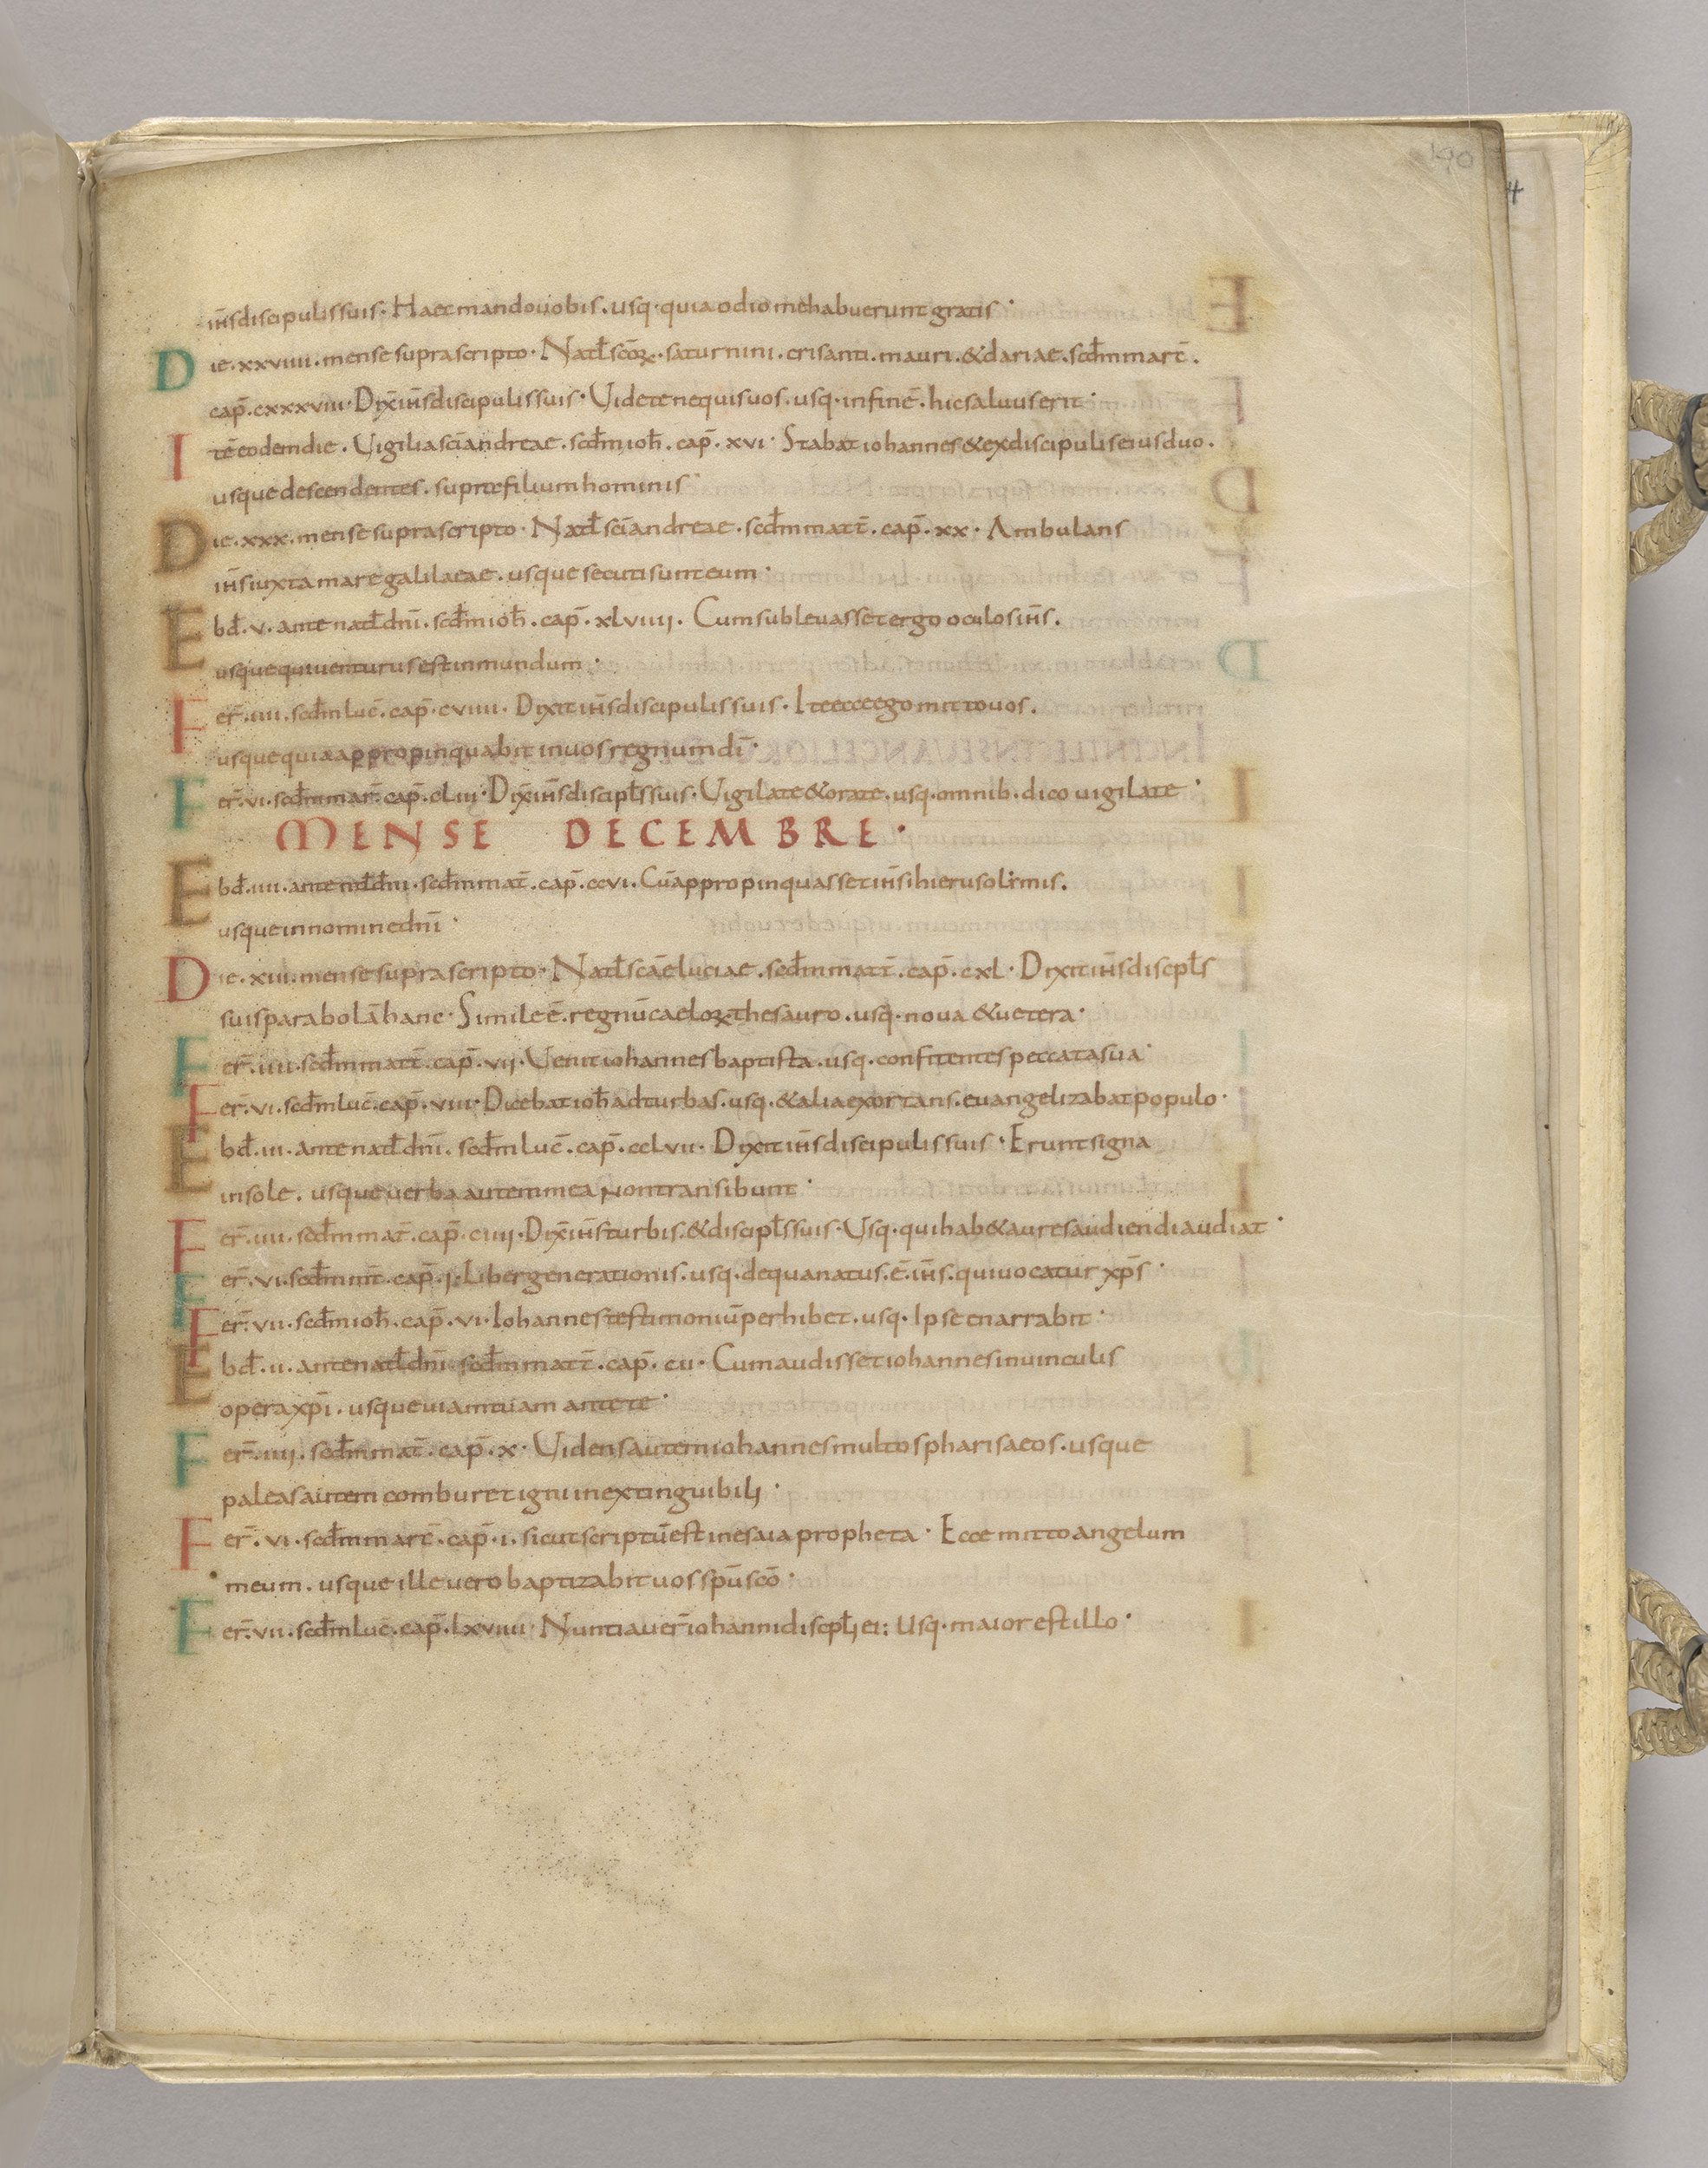 190
4
ih̅s discipulis suis · Haec mando uobis . usq · quia odio me habuerunt gratis ·
Die . xxviiii . mense suprascripto · Natł sc̅oꝝ . saturnini . crisanti . mauri . & dariae . scdm̅ marc̅ .
cap̅ . cxxxviii · Dix̅ ih̅s discipulis suis · Uidete nequis uos . usq · in fine̅ . hic saluus erit ·
Ite̅ eodem die . Uigilia sc̅i andreae . scdm̅ ioh̅ . cap̅ . xvi · Stabat iohannes & ex discipulis eius duo .
usque descendentes . supra filium hominis
Die . xxx . mense suprascripto · Natł sc̅i andreae . scdm̅ matt̅ . cap̅ . xx · Ambulans
ih̅s iuxta mare galilaeae . usque secuti sunt eum ·
Ebd̅ . v . ante natł dn̅i . scdm̅ ioh̅ . cap̅ . xlviiii . Cum subleuasset ergo oculos ih̅s .
usque qui uenturus est in mundum ·
Fer̅ . iiii . scdm̅ luc̅ . cap̅ . cviiii · Dixit ih̅s discipulis suis · Ite ecce ego mitto uos .
usque quia appropinquabit in uos regnum dī ·
Fer̅ . vi . scdm̅ mar̅ . cap̅ . cliii · Dix̅ ih̅s discipłs suis · Uigilate & orate . usq · omnib . dico uigilate ·
MENSE DECEMBRE ·
Ebd̅ . iiii . ante natł dn̅i . scdm̅ mat̅ . cap̅ . ccvi . Cu̅ appropinquasset ih̅s hierusolimis .
usque in nomine dn̅i ·
Die . xiii . mense suprascripto · Natł sc̅ae luciae . scdm̅ matt̅ . cap̅ . cxl · Dixit ih̅s discpłs
suis parabola̅ hanc · Simile e̅ . regnu̅ caeloꝝ thesauro . usq · noua & uetera ·
Fer̅ . iiii . scdm̅ matt̅ . cap̅ . vii · Uenit iohannes baptista . usq . confitentes peccata sua ·
Fer̅ . vi . scdm̅ luc̅ . cap̅ . viii · Dicebat ioh̅ ad turbas . usq . & alia exortans . euangelizabat populo ·
Ebd̅ . iii . ante natł dn̅i . scdm̅ luc̅ . cap̅ . cclvii · Dixit ih̅s discipulis suis · Erunt signa
in sole . usque uerba autem mea non transibunt ·
Fer̅ . iiii . scdm̅ mat̅ . cap̅ . ciiii · Dix̅ ih̅s turbis . & discipłs suis · Usq · qui hab& aures audiendi audiat ·
Fer̅ . vi . scdm̅ mt̅ . cap̅ . i · Liber generationis . usq . de qua natus . e̅ . ih̅s . qui uocatur xp̅s ·
Fer̅ . vii . scdm̅ ioh̅ . cap̅ . vi · Iohannes testimoniu̅ perhibet . usq · Ipse enarrabit ·
Ebd̅ . ii . ante natł dn̅i . scdm̅ matt̅ . cap̅ . cii · Cum audisset iohannes in uinculis
opera xp̅i . usque uiam tuam ante te ·
Fer̅ . iiii . scdm̅ mat̅ . cap̅ . x · Uidens autem iohannes multos pharisaeos . usque
paleas autem comburet igni inextinguibili ·
Fer̅ . vi . scdm̅ marc̅ . cap̅ . i . sicut scriptu̅ est in esaia propheta · Ecce mitto angelum
meum . usque ille uero baptizabit uos spu̅ sc̅o ·
Fer̅ . vii . scdm̅ luc̅ . cap̅ . lxviiii · Nuntiauer̅ iohanni discpłi ei: Usq · maior est illo ·